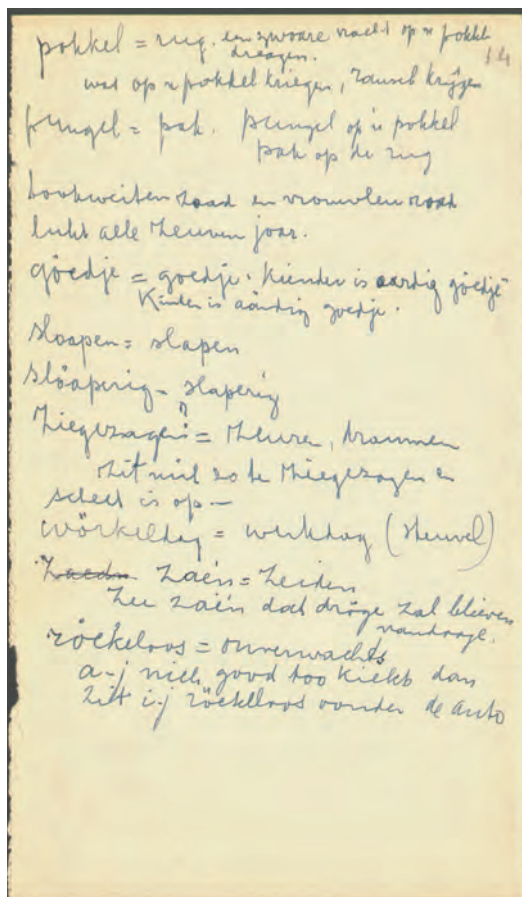 pokkel = rug. een zwoare vracht op 'n pokkel
dreagen.
14
wat op 'n pokkel kriegen, ransel krijgen
pungel = pak. pungel op 'n pokkel
pak op de rug
bookweiten zaad en vrouwlen road
lukt alle zeuven joar.
göedje = goedje. Kiender is aardig göedje
Kinder is aordig goedje.
sloapen = slapen
slöaperig = slaperig
ziegezagen = zeuren, draumen
zit niet zo te ziegezagen en
scheet is op —
wörkeldag = werkdag (Heuvel)
zaén = zeiden
zee zaén dat dröge zal blieven
vandaage.
röekeloos = onverwachts
a-j nich good too kiekt dan
zitt i-j röekeloos oonder de auto